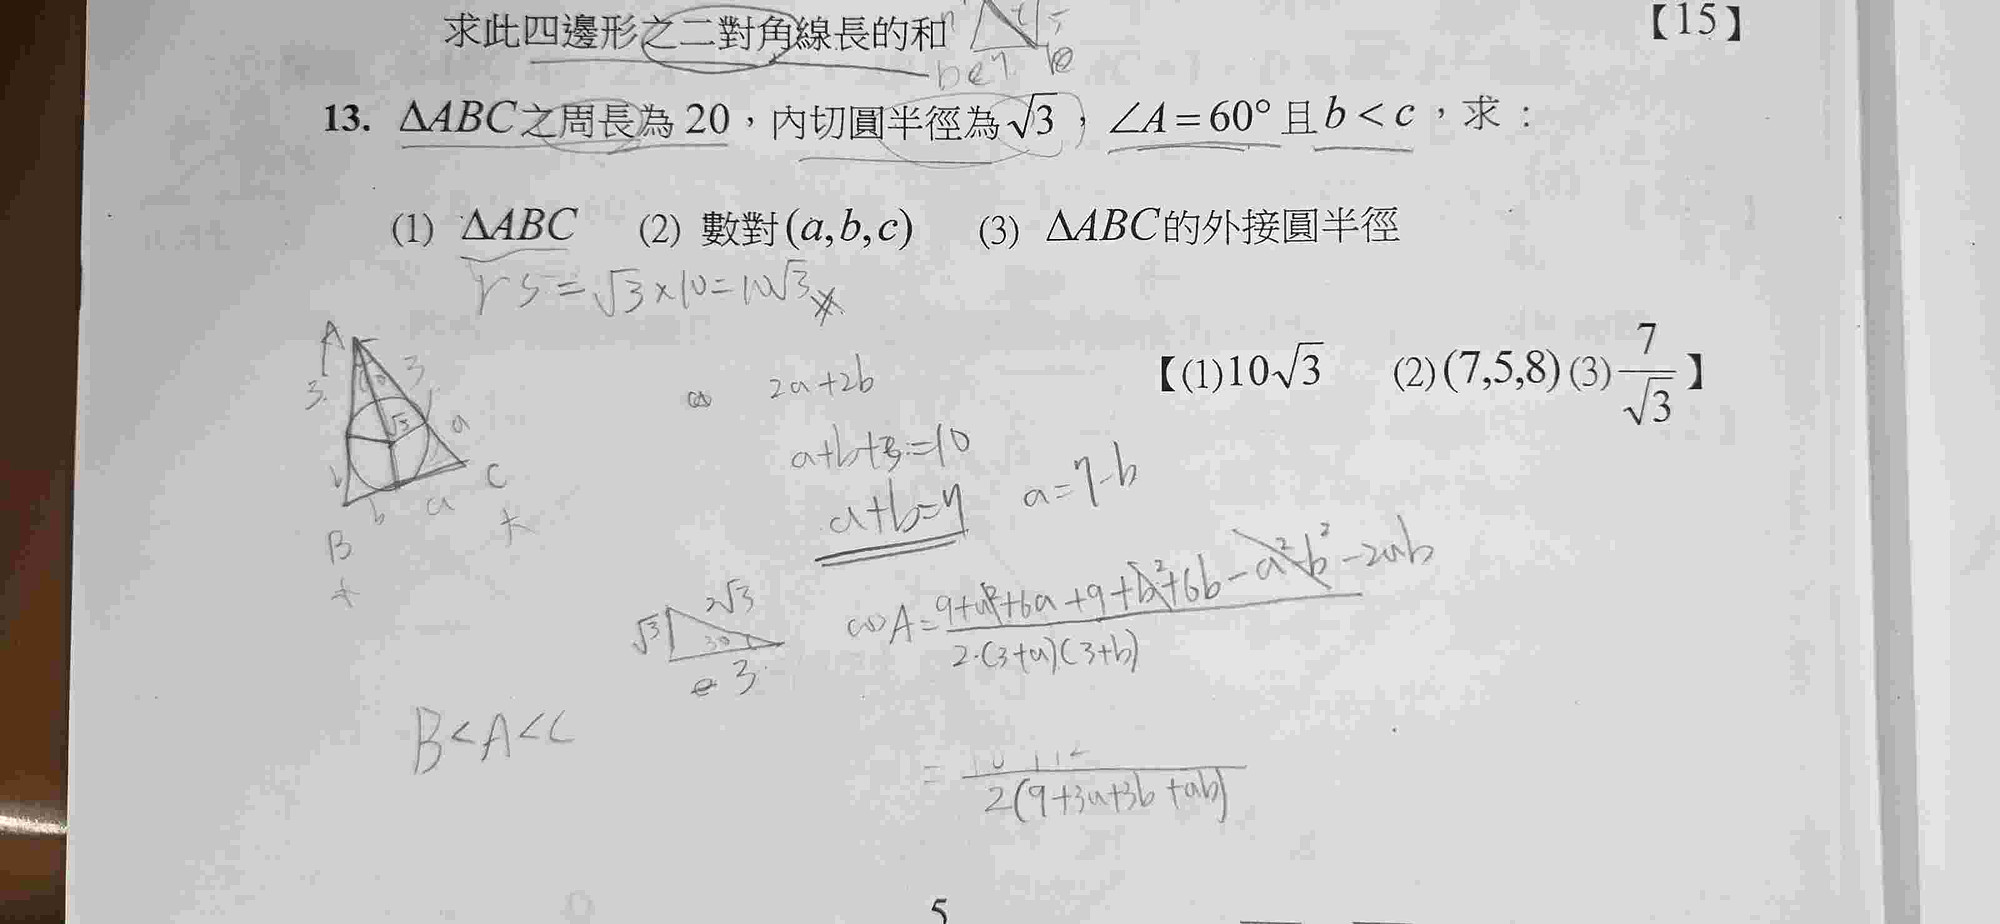 求此四邊形之二對角線長的和 【15】
13. ΔABC之周長為 20，內切圓半徑為√3，∠A=60°且b<c，求：
(1) ΔABC (2) 數對(a,b,c) (3) ΔABC的外接圓半徑
rs=√3×10=10√3
【(1)10√3 (2)(7,5,8) (3) 7/√3】
A
3 3
60
√3
a
b
C
b a
B
2a+2b
a+b+3=10
a+b=7 a=7-b
√3 2√3
30
3
cosA= (9+a²+6a+9+b²+6b-a²-b²-2ab) / (2·(3+a)(3+b))
B<A<C
= / 2(9+3a+3b+ab)
5